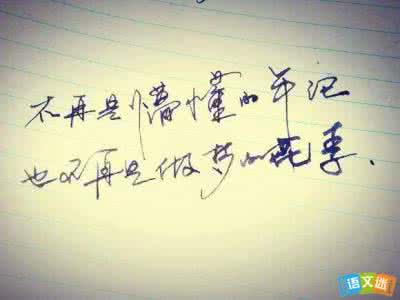 不再是懵懂的年纪
也不再是做梦的花季.
语文迷